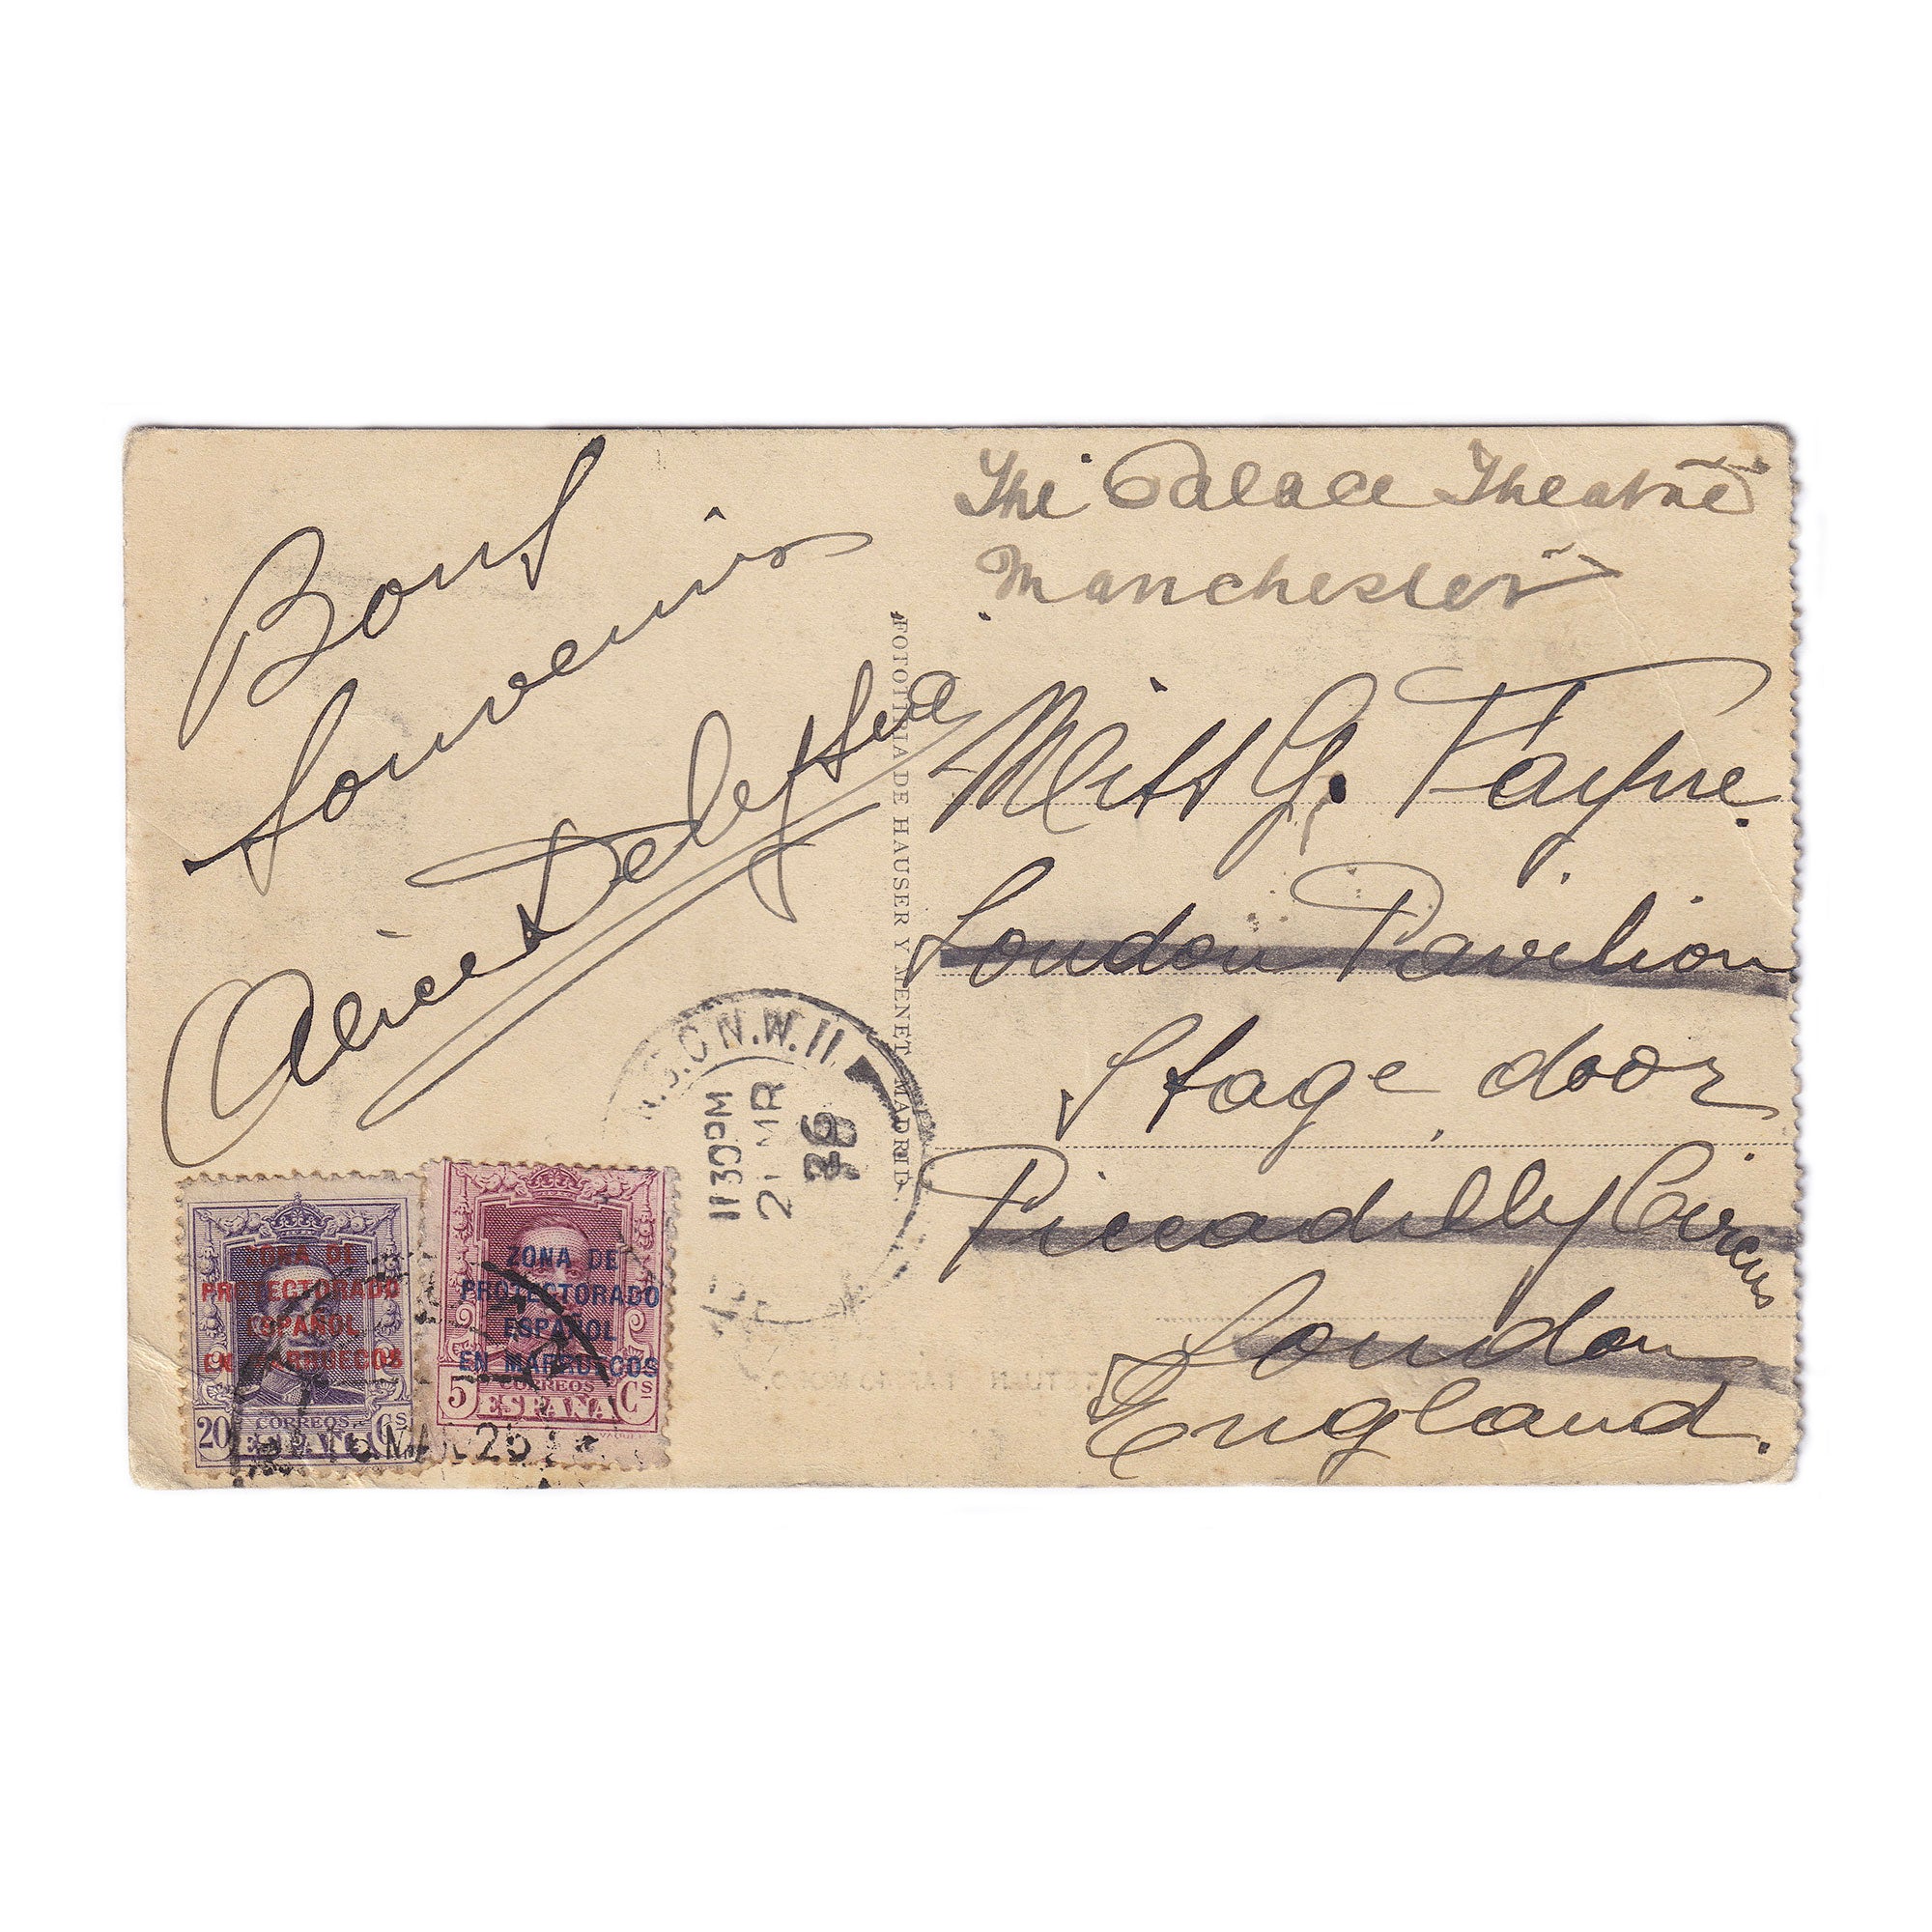 Bons
Souvenirs
Alice Delysia
The Palace Theatre
Manchester
Miss G. Fayne.
London Pavilion
Stage door
Piccadilly Circus
London
England.
FOTOTIPIA DE HAUSER Y MENET - MADRID.
N.W.11.
11 30 PM
21 MR
26
ZONA DE
PROTECTORADO
ESPAÑOL
EN MARRUECOS
CORREOS
20 Cs
ESPAÑA
ZONA DE
PROTECTORADO
ESPAÑOL
EN MARRUECOS
CORREOS
5 ESPAÑA Cs